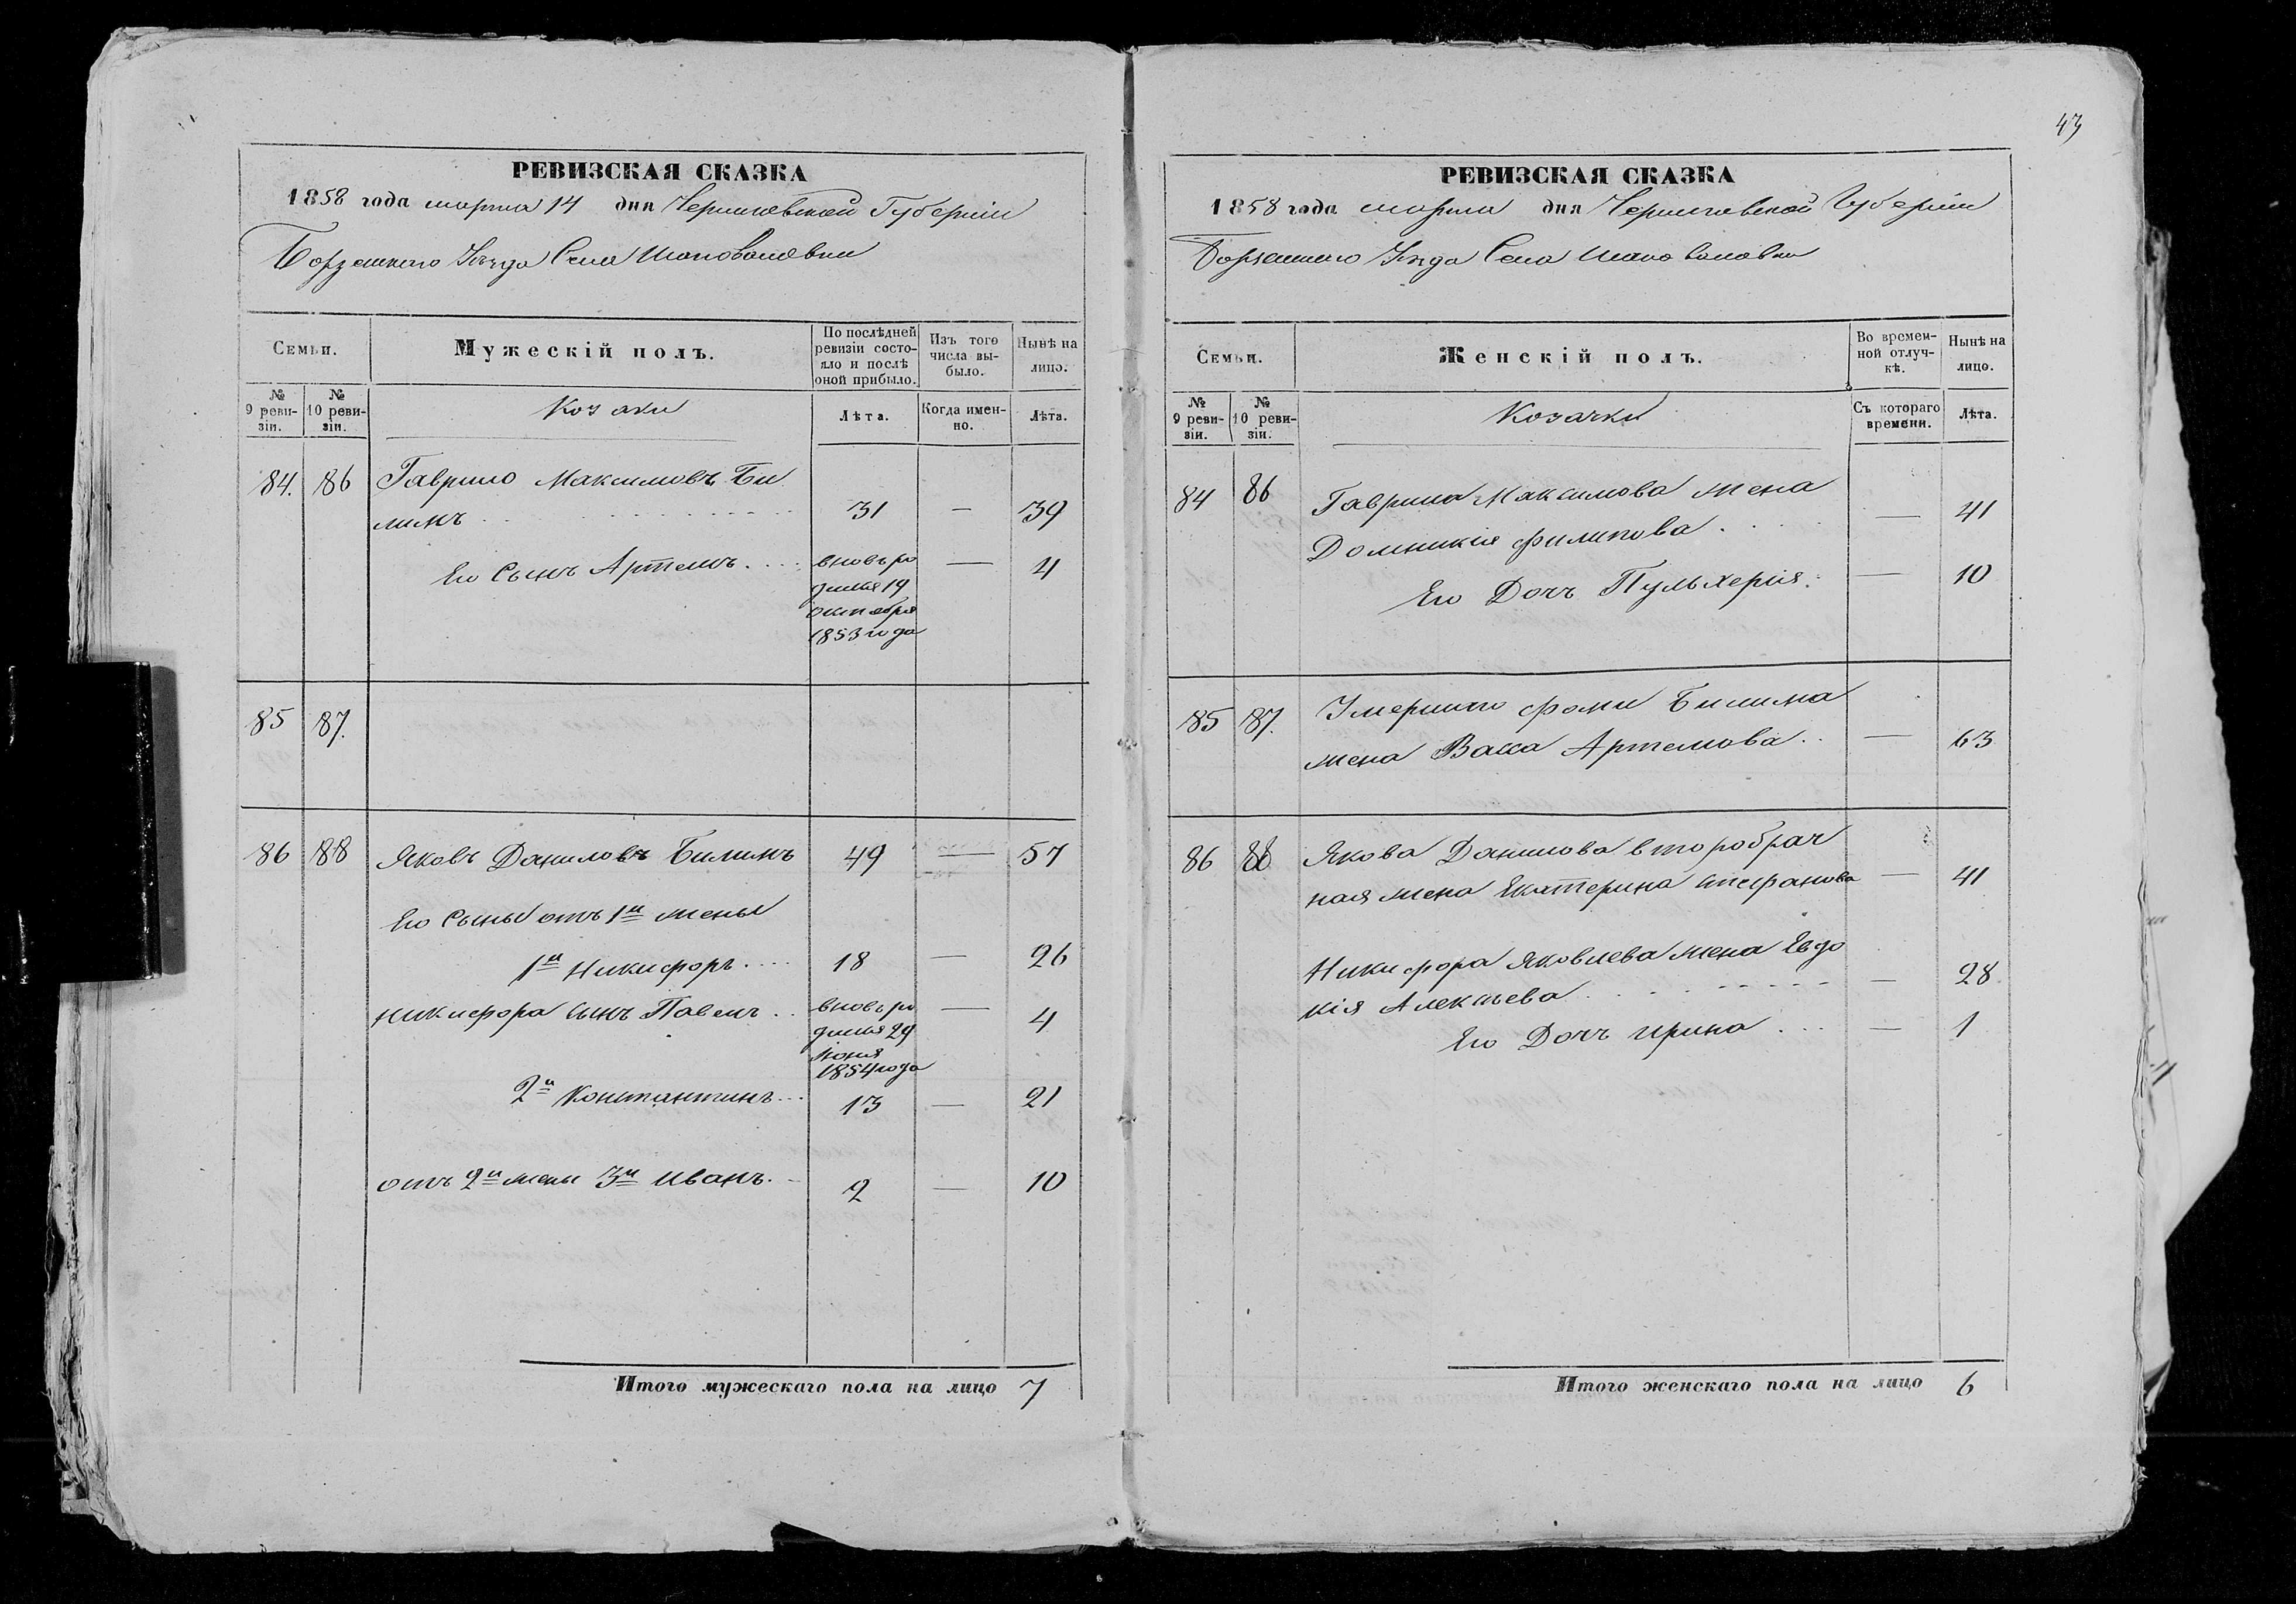 43
РЕВИЗСКАЯ СКАЗКА
1858 года марта 14 дня Черниговской Губерніи
Борзенского Уѣзда Села Шаповаловки
Семьи.
№ 9 ревизіи.
№ 10 ревизіи.
Мужескій полъ.
По послѣдней ревизіи состояло и послѣ оной прибыло.
Изъ того числа выбыло.
Нынѣ на лицо.
Козаки
Лѣта.
Когда именно.
Лѣта.
84. 86 Гаврило Максимовъ Би
лимъ 31 — 39
Его Сынъ Артемъ вновь ро — 4
дилья 19
октября
1853 года
85 87.
86 88 Яковъ Даниловъ Билимъ 49 — 57
Его Сыны отъ 1й жены
1й Никифоръ 18 — 26
Никифора сынъ Павелъ вновь ро — 4
дилья 29
Июня
1854 года
2й Константинъ 13 — 21
отъ 2й жены 3й Иванъ 2 — 10
Итого мужескаго пола на лицо 7
РЕВИЗСКАЯ СКАЗКА
1858 года марта дня Черниговской Губерніи
Борзенского Уѣзда Села Шаповаловки
Семьи.
№ 9 ревизіи.
№ 10 ревизіи.
Женскій полъ.
Во временной отлучкѣ.
Нынѣ на лицо.
Козачки
Съ котораго времени.
Лѣта.
84 86 Гаврила Максимова жена
Домникія Филипова — 41
Его Дочъ Пульхерія — 10
85 87. Умершого Фомы Билима
жена Васса Артемова — 63
86 88 Якова Данилова второбрач
ная жена Екатерина Стефанова — 41
Никифора Яковлева жена Евдо
кія Алексѣева — 28
Его Дочъ Ирина — 1
Итого женскаго пола на лицо 6